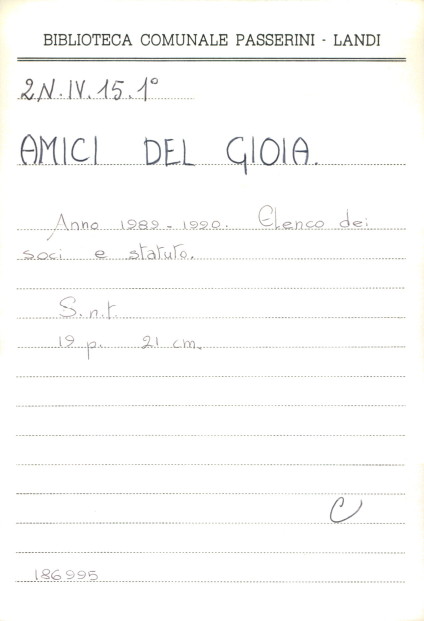 BIBLIOTECA COMUNALE PASSERINI - LANDI
2N.IV.15.1°
AMICI DEL GIOIA.
Anno 1989-1990. Elenco dei
soci e statuto.
S.n.t.
19 p. 21 cm.
C
186995